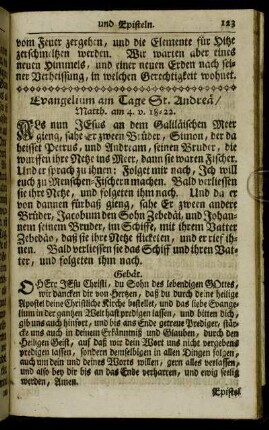 und Episteln. 123
vom Feuer zergehen, und die Elemente für Hitze
zerschmeltzen werden. Wir warten aber eines
neuen Himmels, und einer neuen Erden nach sei-
ner Verheissung, in welchen Gerechtigkeit wohnet.
Evangelium am Tage St. Andreä/
Matth. am 4. v. 18-22.
Als nun JEsus an dem Galiläischen Meer
gieng, sahe Er zween Brüder, Simon, der da
heisset Petrus, und Andream, seinen Bruder, die
wurffen ihre Netze ins Meer, dann sie waren Fischer.
Und er sprach zu ihnen: Folget mir nach, Ich will
euch zu Menschen-Fischern machen. Bald verliessen
sie ihre Netz, und folgeten ihm nach. Und da er
von dannen fürbaß gieng, sahe Er zween andere
Brüder, Jacobum den Sohn Zebedäi, und Johan-
nem seinem Bruder, im Schiffe, mit ihrem Vatter
Zebedäo, daß sie ihre Netze flicketen, und er rief ih-
nen. Bald verliessen sie das Schiff und ihren Vat-
ter, und folgeten ihm nach.
Gebät.
O HErr JEsu Christi, du Sohn des lebendigen GOttes,
wir dancken dir von Hertzen, daß du durch deine heilige
Apostel deine Christliche Kirche bestellet, und das liebe Evange-
lium in der gantzen Welt hast predigen lassen, und bitten dich,
gib uns auch hinfort, und bis ans Ende getreue Prediger, stär-
cke uns auch in deinem Erkänntniß und Glauben, durch den
Heiligen Geist, auf daß wir dein Wort uns nicht vergebens
predigen lassen, sondern demselbigen in allen Dingen folgen,
auch um dein und deines Worts willen, gern alles verlassen,
und also bey dir bis an das Ende verharren, und ewig seelig
werden, Amen.
Epistel